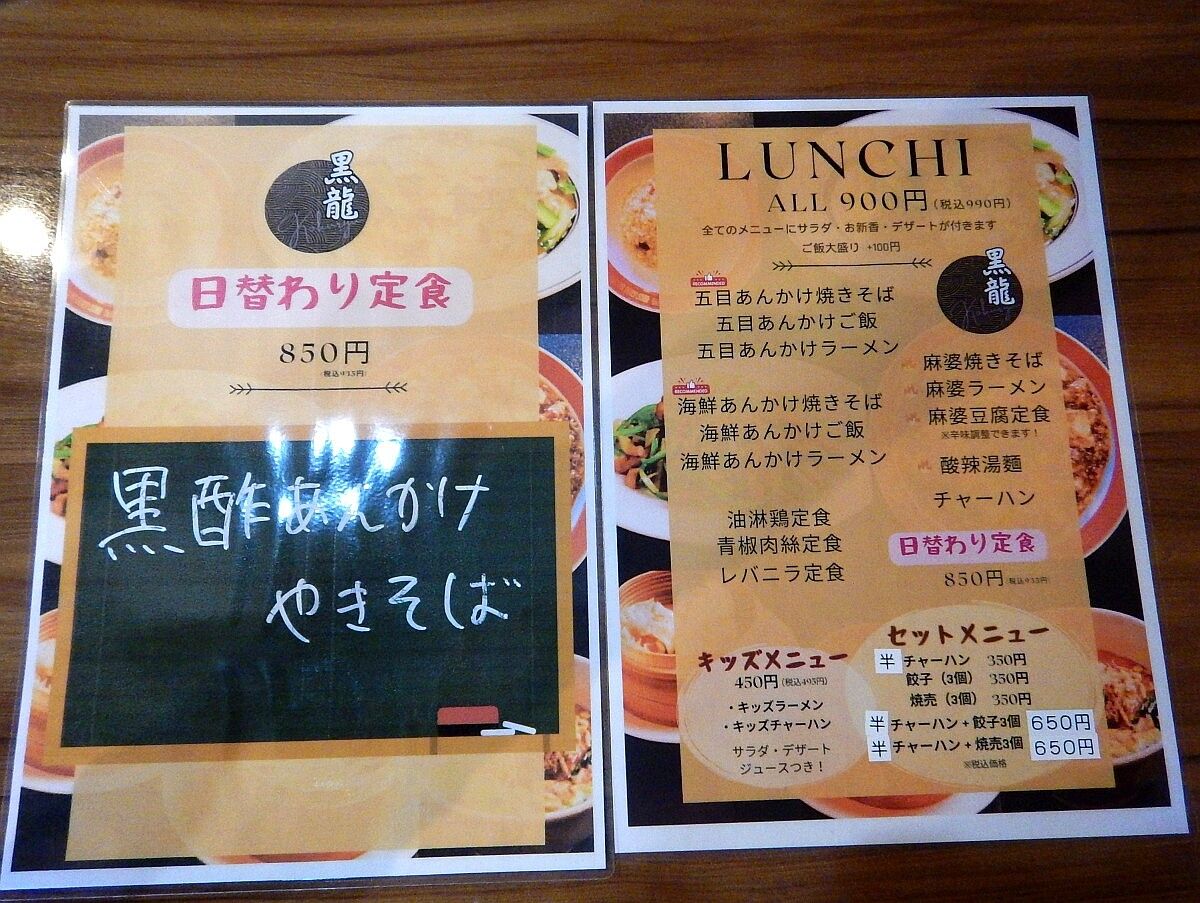 黒龍
日替わり定食
850円
税込935円
黒酢あんかけ
やきそば
LUNCHI
ALL 900円(税込990円)
全てのメニューにサラダ・お新香・デザートが付きます
ご飯大盛り +100円
黒龍
RECOMMENDED
五目あんかけ焼きそば
五目あんかけご飯
五目あんかけラーメン
RECOMMENDED
海鮮あんかけ焼きそば
海鮮あんかけご飯
海鮮あんかけラーメン
油淋鶏定食
青椒肉絲定食
レバニラ定食
麻婆焼きそば
麻婆ラーメン
麻婆豆腐定食
※辛味調整できます!
酸辣湯麺
チャーハン
日替わり定食
850円(税込935円)
キッズメニュー
450円(税込495円)
・キッズラーメン
・キッズチャーハン
サラダ・デザート
ジュースつき!
セットメニュー
半 チャーハン 350円
餃子(3個) 350円
焼売(3個) 350円
半 チャーハン+餃子3個 650円
半 チャーハン+焼売3個 650円
※税込価格